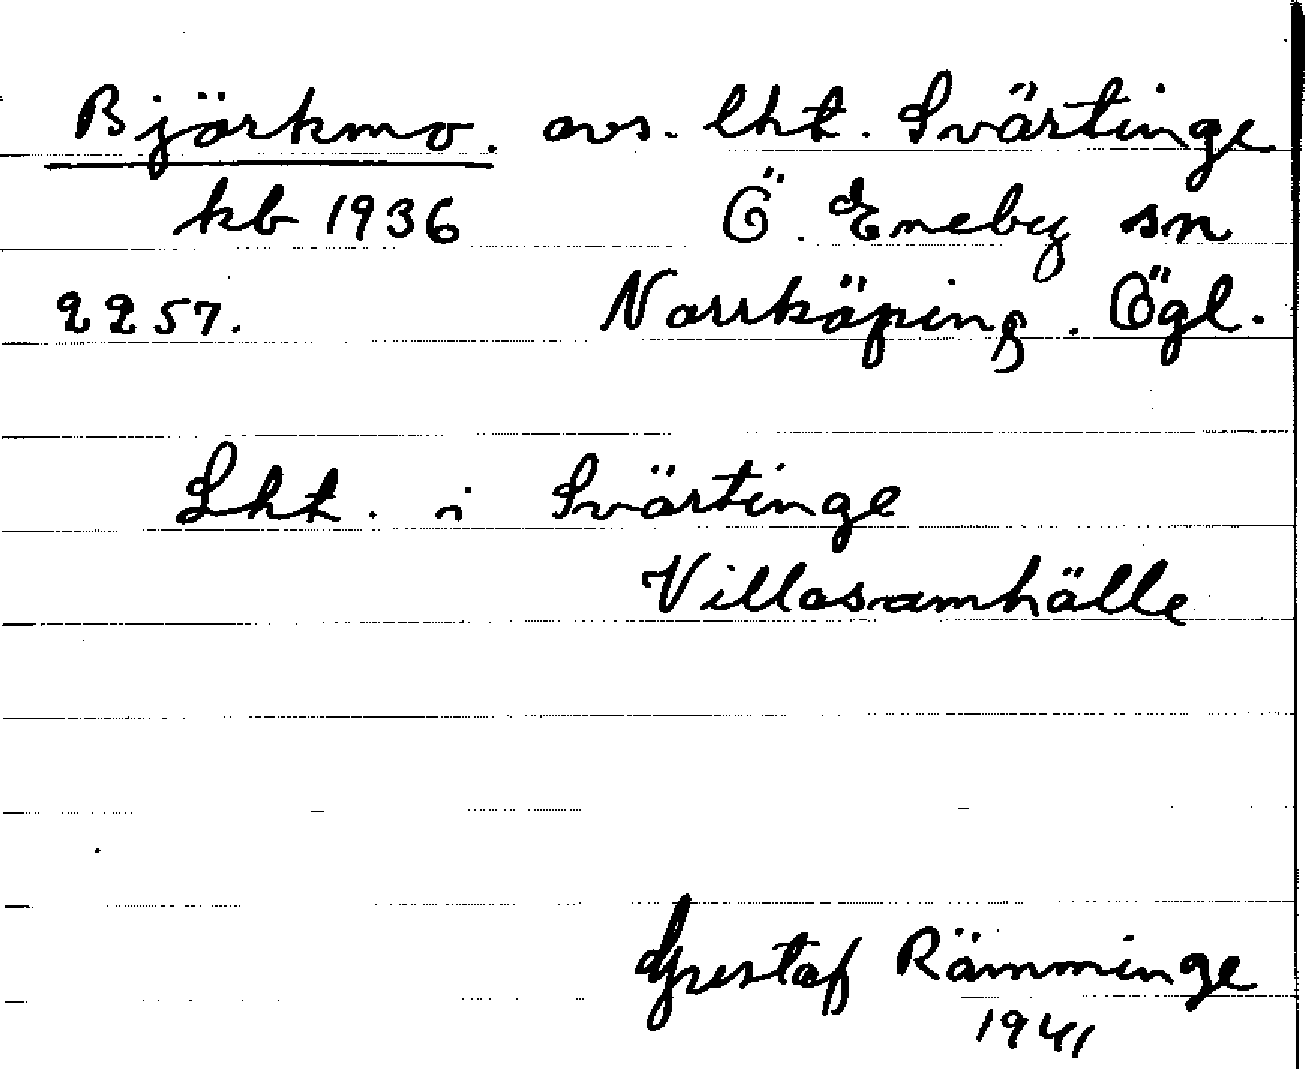 Björkmo. avs. lht. Svärtinge
kb 1936 Ö. Eneby sn
2257. Norrköping. Ögl.
Lht. i Svärtinge
Villasamhälle
Gustaf Rämminge
1941